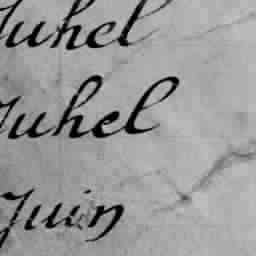 Juhel
Juhel
Juin